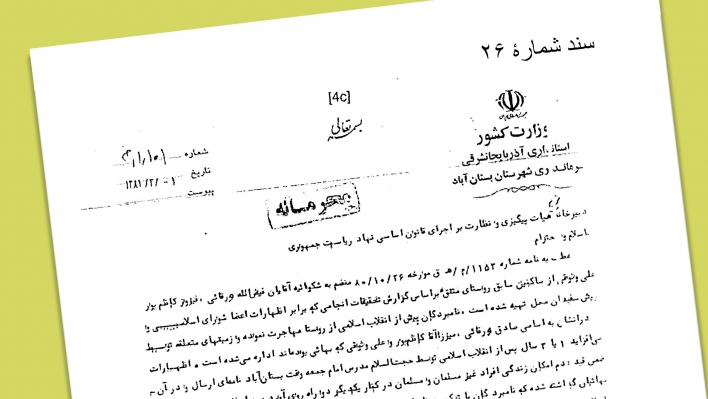 سند شمارهٔ ۲۶
[4c]
بسمه‌تعالی
وزارت کشور
استانداری آذربایجانشرقی
فرمانداری شهرستان بستان آباد
شماره
تاریخ
پیوست
محرمانه
دبیرخانه هیات پیگیری و نظارت بر اجرای قانون اساسی نهاد ریاست جمهوری
با سلام و احترام
عطف به نامه شماره ۱۱۵۳/م/هـ ق مورخه ۸۰/۱۰/۲۶ منضم به شکوائیه آقایان فیض‌الله ورقائی ، فیروز کاظم پور
علی وثوقی از ساکنین سابق روستای متنق براساس گزارش تحقیقات انجامی که برابر اظهارات اعضا شورای اسلامی و
ریش سفیدان محل تهیه شده است ، نامبردگان پیش از انقلاب اسلامی از روستا مهاجرت نموده و زمینهای متعلقه توسط
به اسامی صادق ورقائی ، میرزاآقا کاظم‌پور و علی وثوقی که بهائی بوده‌اند اداره می‌شده است ، اظهارات
می‌افزاید ۱ یا ۲ سال پس از انقلاب اسلامی توسط حجت‌السلام مدرس امام جمعه وقت بستان‌آباد نامه‌ای ارسال و در آن
قید : عدم امکان زندگی افراد غیر مسلمان و مسلمان در کنار یکدیگر